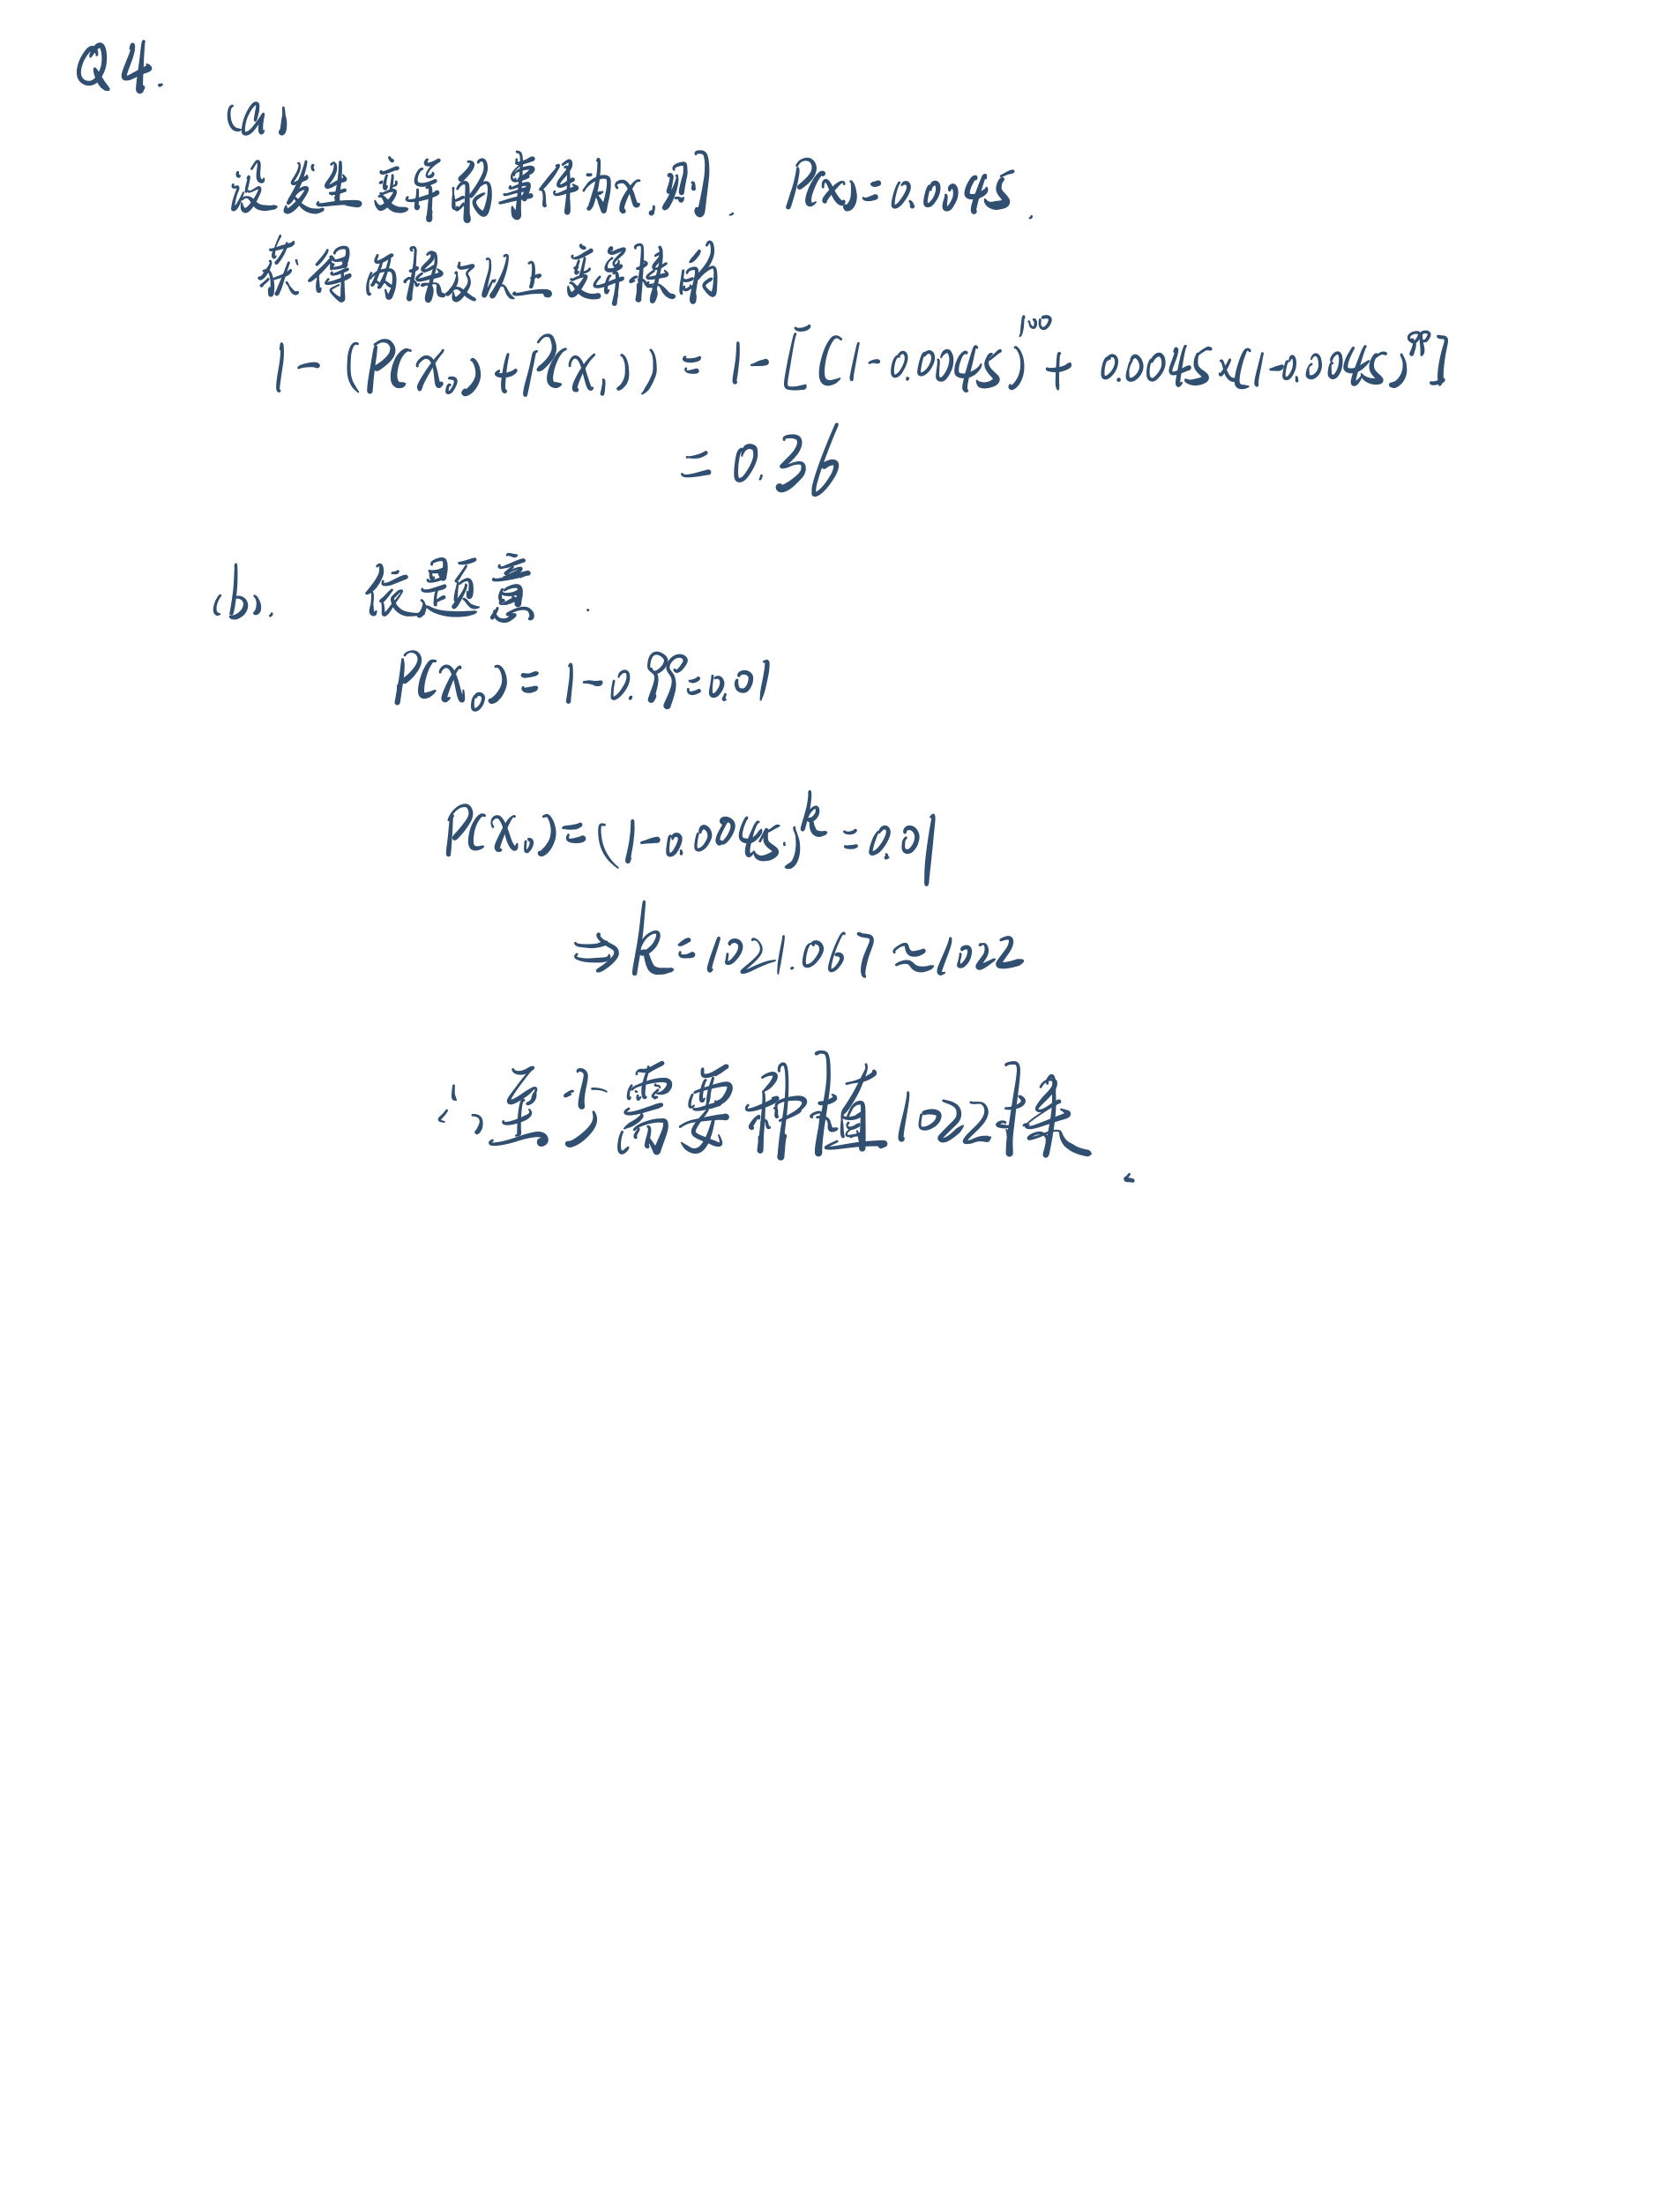 Q4.
(a)
设发生变异的事件为x,则. P(x)=0.0045.
获得两棵及以上变异株的
1-(P(x₀)+P(x₁))=1-[(1-0.0045)¹⁰⁰+0.0045×(1-0.0045)⁹⁹]
=0.36
(b). 依题意.
P(x₀)=1-0.99=0.01
P(x₀)=(1-0.0045)ᵏ=0.01
⇒k=1021.067≈1022
∴至少需要种植1022株.